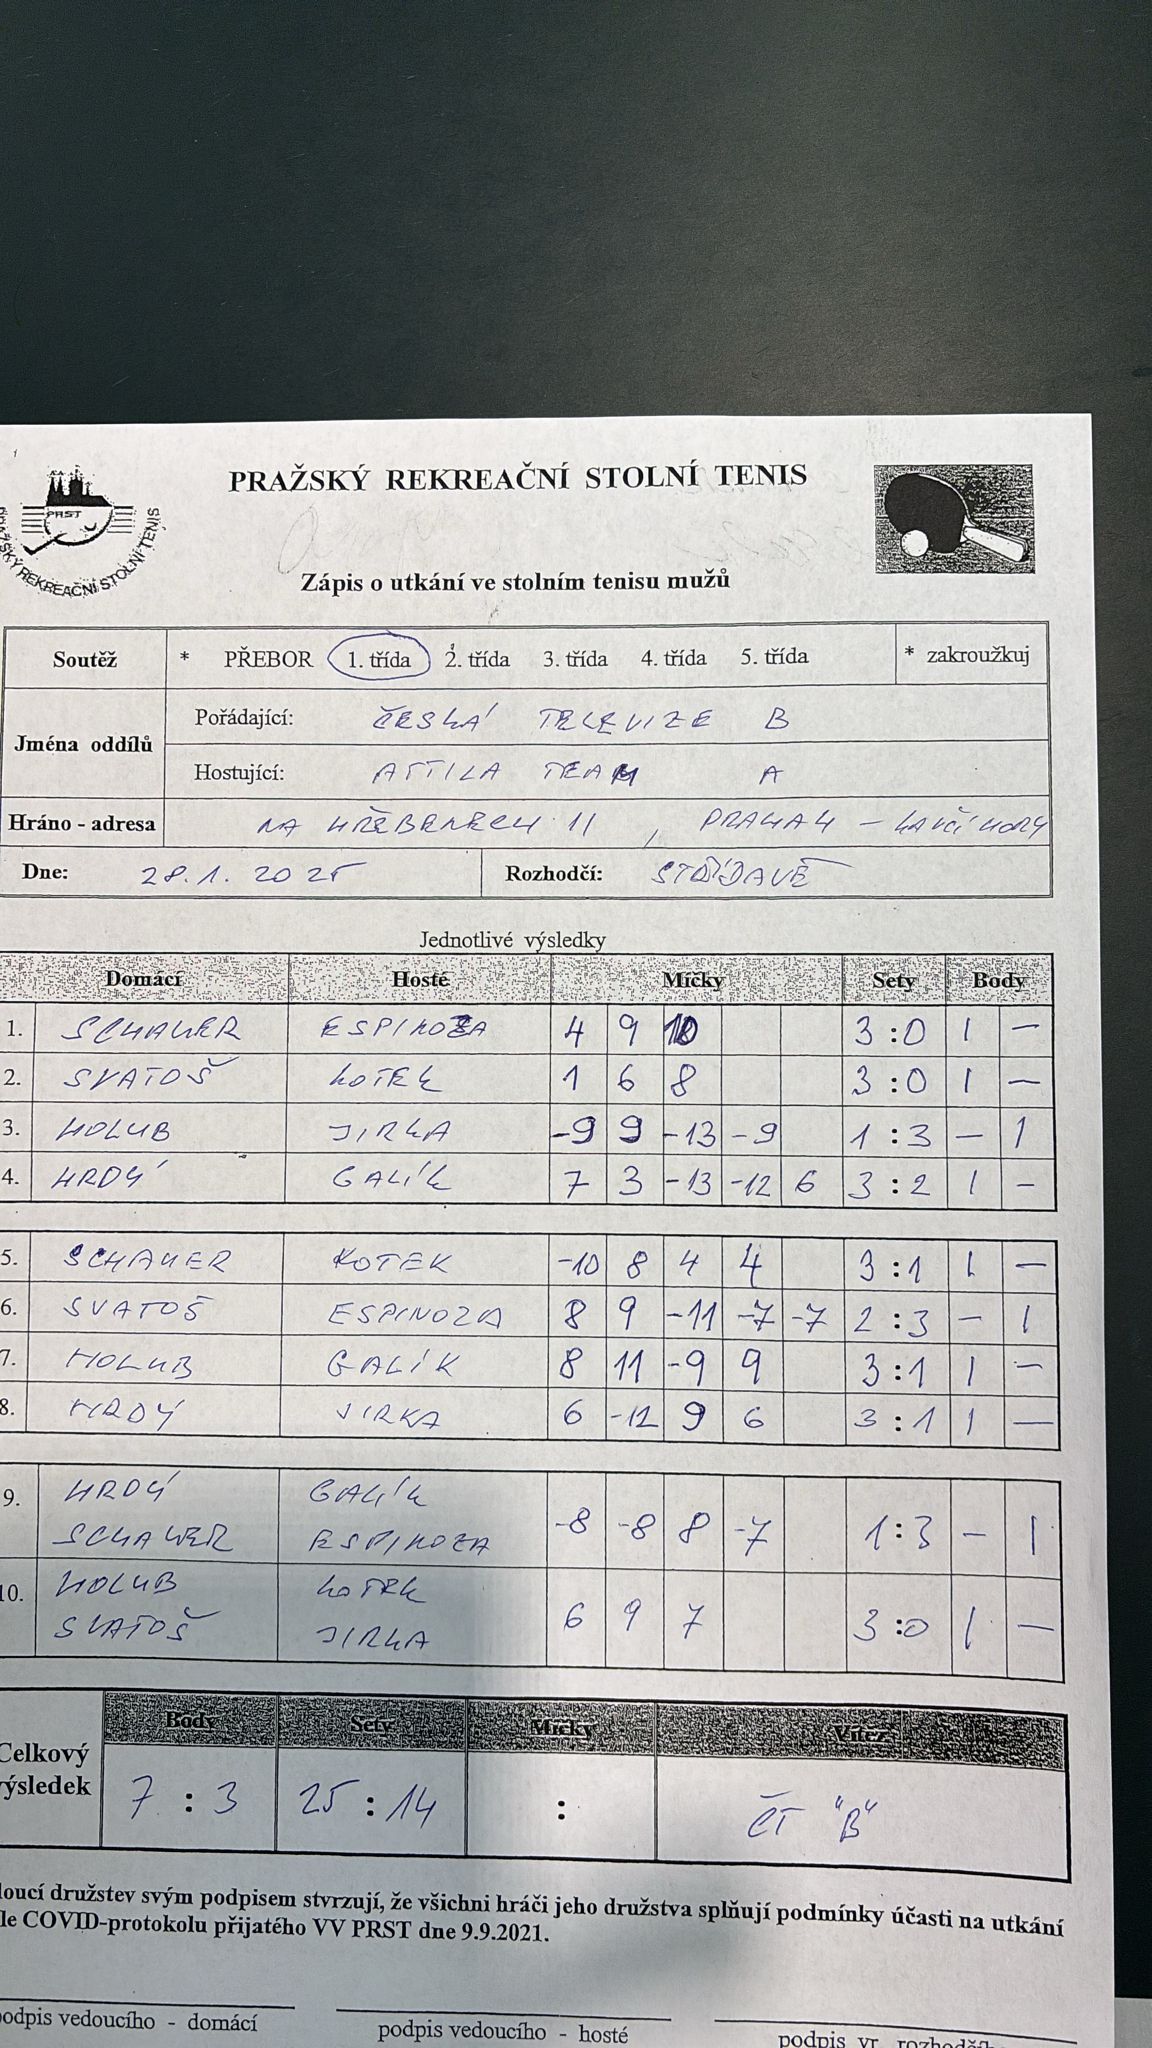 PRAŽSKÝ REKREAČNÍ STOLNÍ TENIS
PRST
PRAŽSKÝ REKREAČNÍ STOLNÍ TENIS
Zápis o utkání ve stolním tenisu mužů
Soutěž * PŘEBOR 1. třída 2. třída 3. třída 4. třída 5. třída * zakroužkuj
Jména oddílů
Pořádající: ČESKÁ TELEVIZE B
Hostující: ATTILA TEAM A
Hráno - adresa NA HŘEBENECH 11, PRAHA 4 - KAVČÍ HORY
Dne: 28.1. 2025 Rozhodčí: STŘÍDAVĚ
Jednotlivé výsledky
Domácí Hosté Míčky Sety Body
1. SCHAUER ESPINOZA 4 9 10 3:0 1 —
2. SVATOŠ KOTEK 1 6 8 3:0 1 —
3. HOLUB JIRKA -9 9 -13 -9 1:3 — 1
4. HRDÝ GALÍK 7 3 -13 -12 6 3:2 1 -
5. SCHAUER KOTEK -10 8 4 4 3:1 1 —
6. SVATOŠ ESPINOZA 8 9 -11 -7 -7 2:3 — 1
7. HOLUB GALÍK 8 11 -9 9 3:1 1 —
8. HRDÝ JIRKA 6 -12 9 6 3:1 1 —
9. HRDÝ GALÍK
SCHAUER ESPINOZA -8 -8 8 -7 1:3 — 1
10. HOLUB KOTEK
SVATOŠ JIRKA 6 9 7 3:0 1 —
Body Sety Míčky Vítěz
Celkový
výsledek 7 : 3 25 : 14 : ČT "B"
loucí družstev svým podpisem stvrzují, že všichni hráči jeho družstva splňují podmínky účasti na utkání
dle COVID-protokolu přijatého VV PRST dne 9.9.2021.
podpis vedoucího - domácí podpis vedoucího - hosté podpis vr. rozhodčího